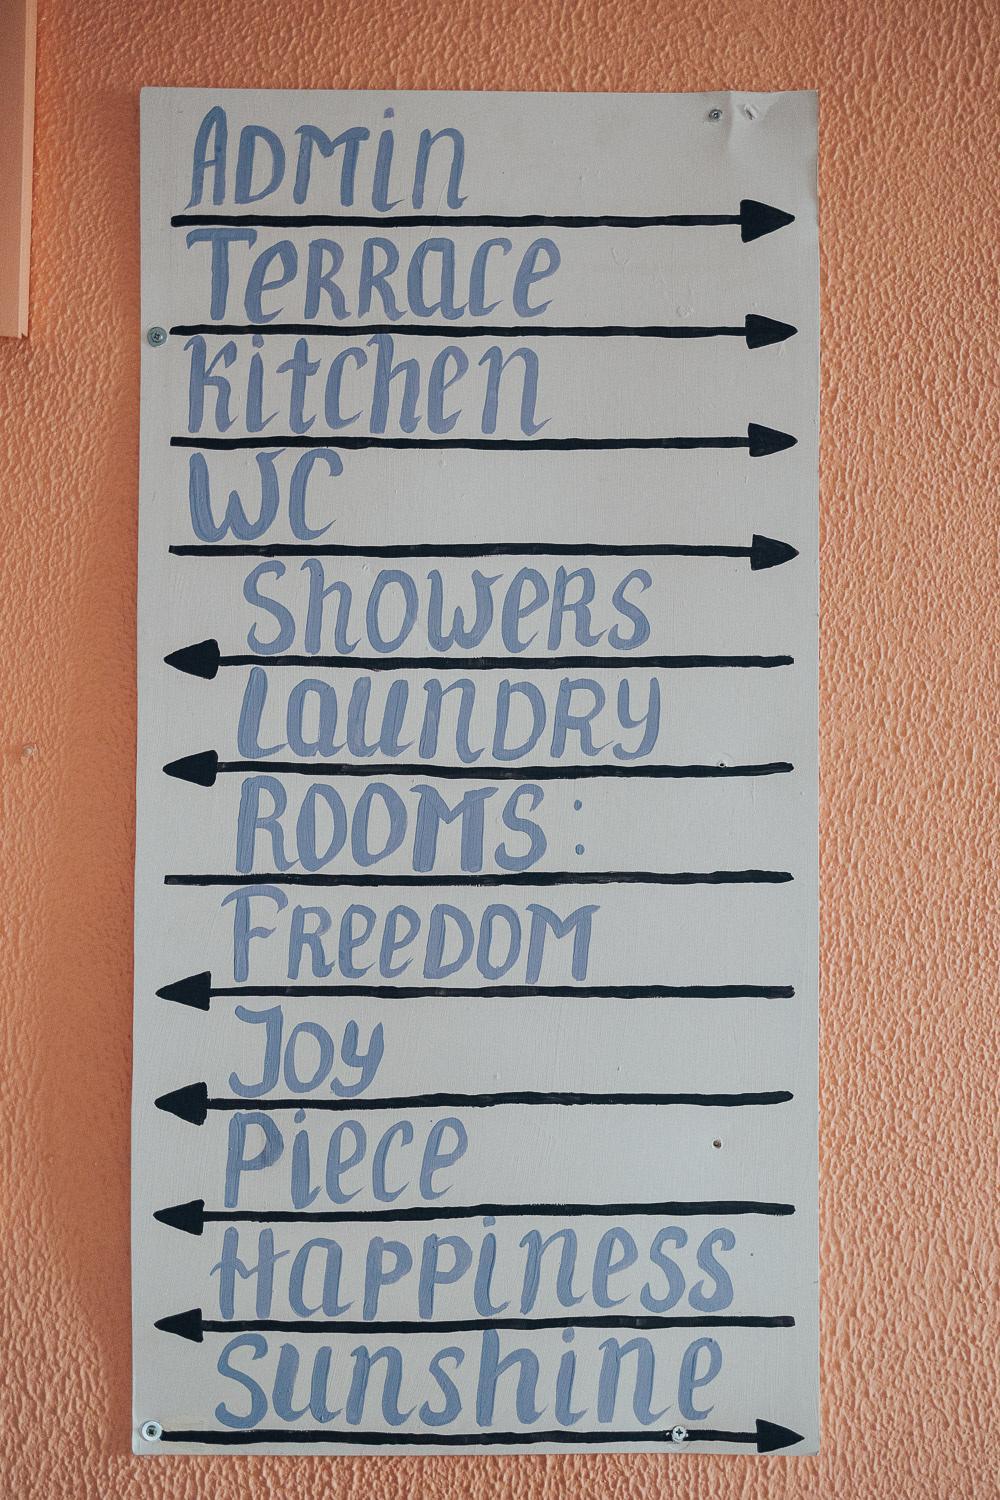 Admin
Terrace
Kitchen
WC
Showers
Laundry
ROOMS:
Freedom
Joy
Piece
Happiness
Sunshine